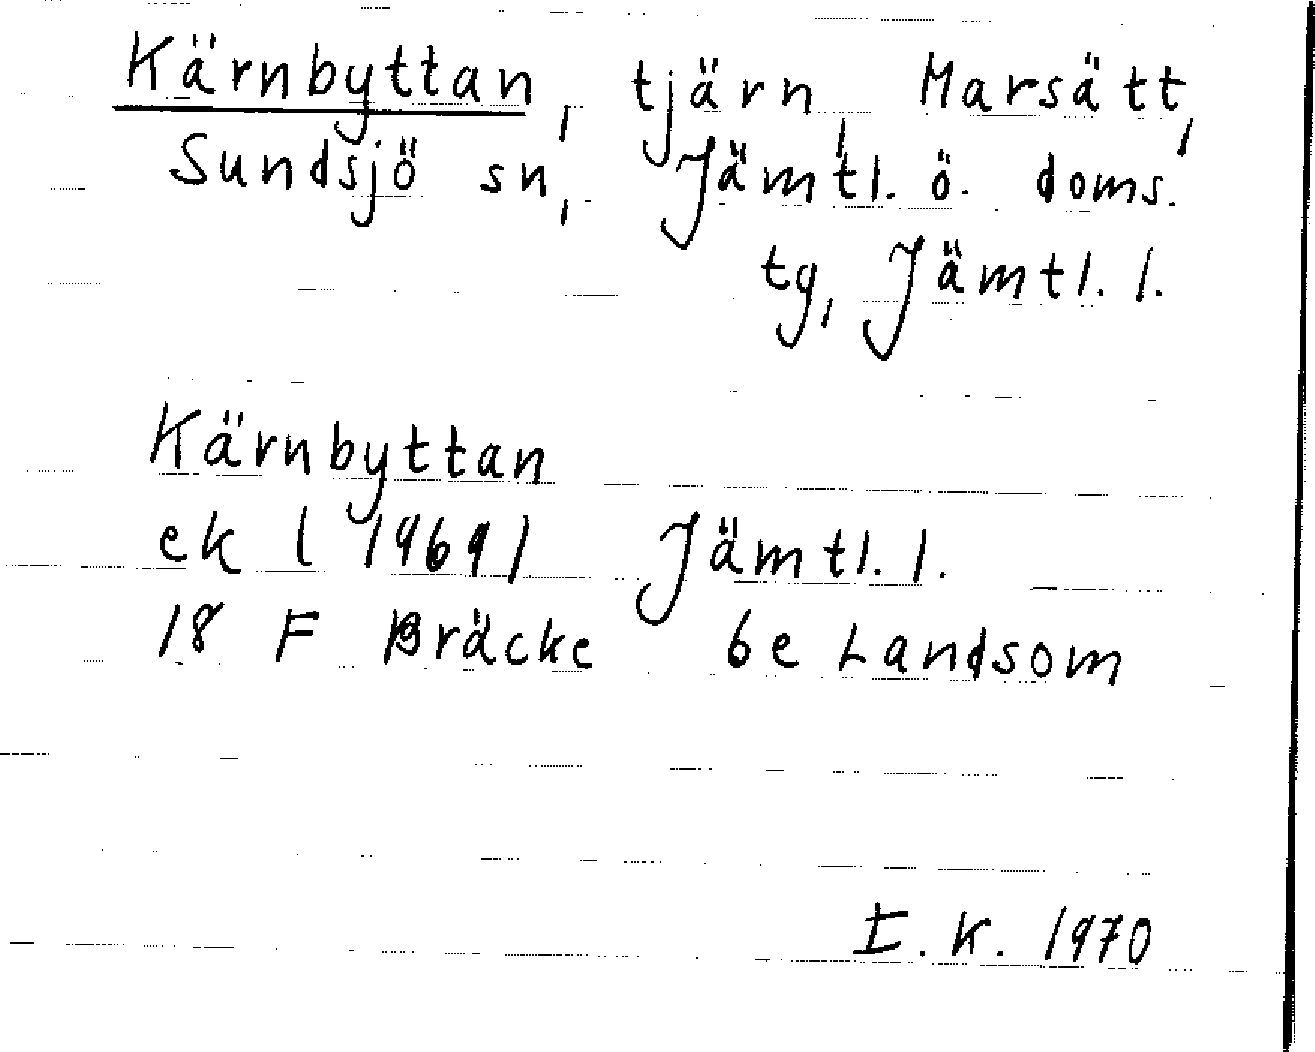 Kärnbyttan, tjärn, Marsätt,
Sundsjö sn, Jämtl. ö. doms.
tg, Jämtl. l.
Kärnbyttan
ek ( 1969 ) Jämtl. l.
18 F Bräcke 6e Landsom
E.K. 1970